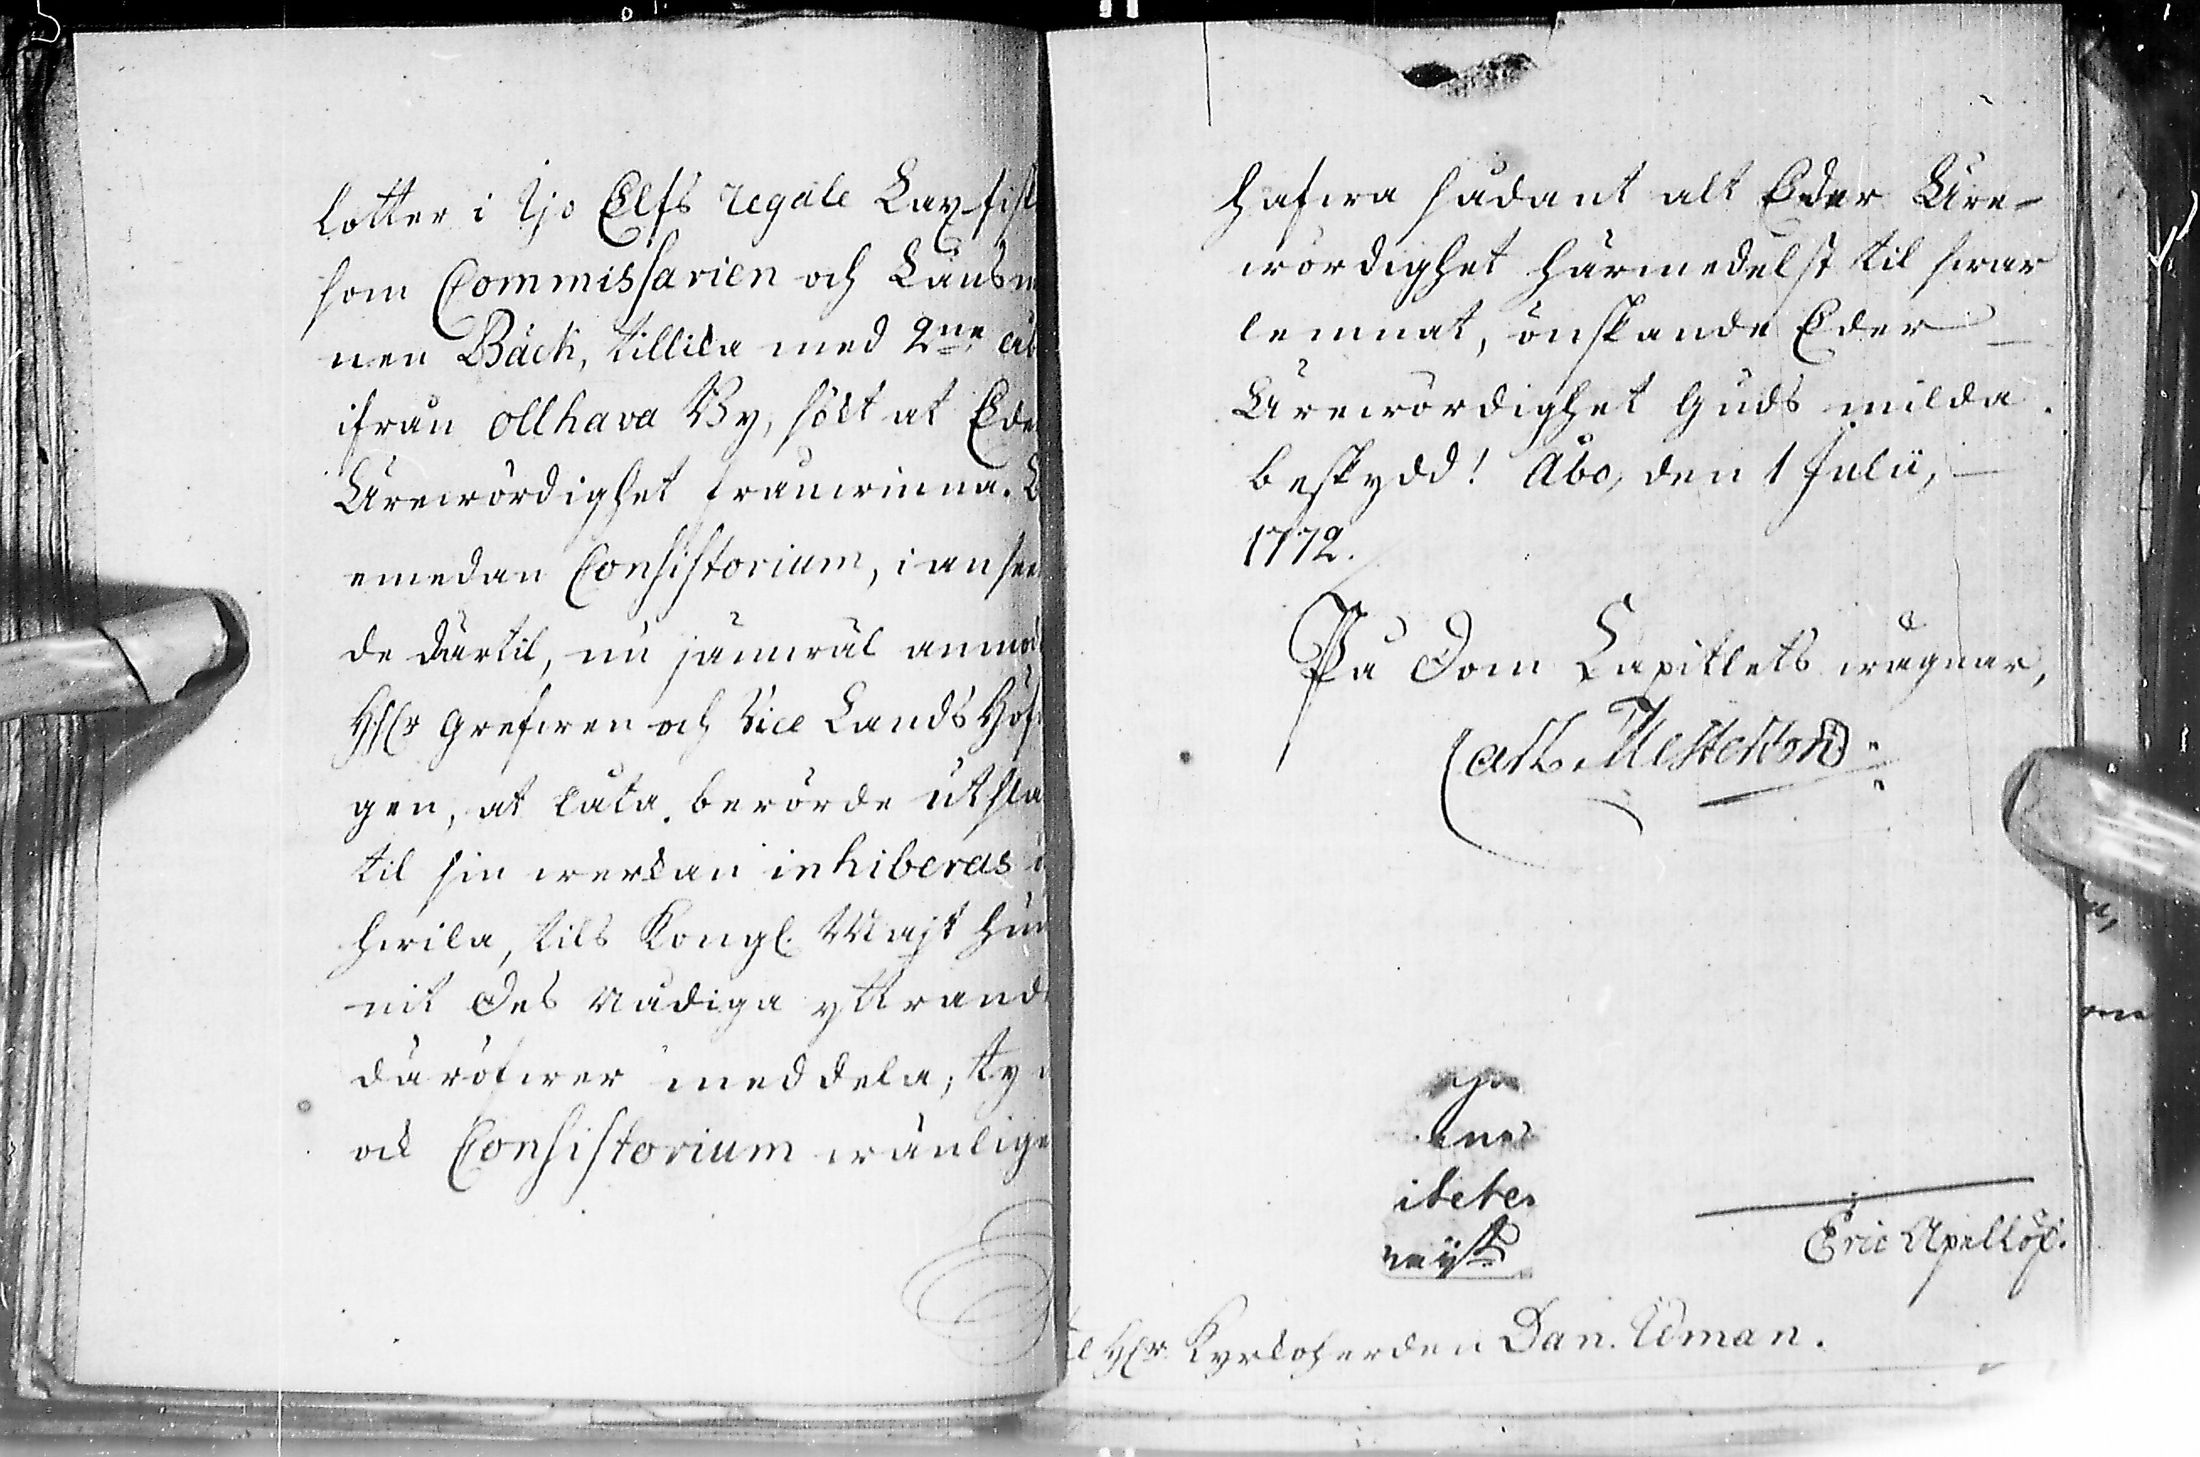 lotter i Ijo Elfs regale Laxfisk
som Commissarien och Länsm
nen Bäck, tillika med 2ne åb
ifrån Olhava By, sökt at Eder
Ärewördighet frånwinna. 
emedan Consistorium, i anseen
de därtil, nu jämwäl anmod
H:Hr Grefwen och Vice Lands Höf
gen, at låta berörde utsla
til sin werkan inhiberas i
hwila, tils Kongl. Maj:t hun
nit Des Nådiga yttrande
däröfwer meddela; ty
ock Consistorium wänlige
hafwa sådant alt Eder Äre-
wördighet härmedelst til swar
lemnat, önskande Eder
Ärewördighet Guds milda
beskydd! Åbo, den 1 Julii,
1772.
På Dom Capitlets wägnar,
Carl Mesterton
Eric Apellöf.
Hr. Kyrkoherden Dan. Udman.